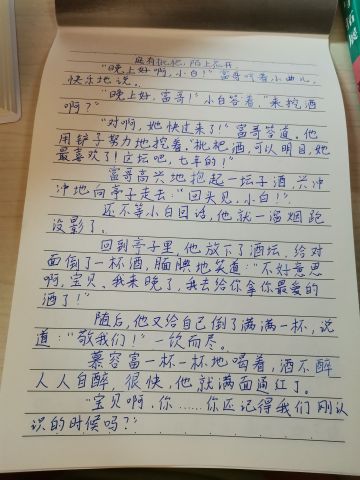 庭有枇杷,陌上花开
“晚上好啊,小白!”富哥哼着小曲儿,
快乐地说。
“晚上好,富哥!”小白答着,“来挖酒
啊?”
“对啊,她快过来了!”富哥答道。他
用铲子努力地挖着,“枇杷酒,可以明目,她
最喜欢了!这坛吧,七年的!”
富哥高兴地抱起一坛子酒,兴冲
冲地向亭子走去:“回头见,小白!”
还不等小白回话,他就一溜烟跑
没影了。
回到亭子里,他放下了酒坛,给对
面倒了一杯酒,腼腆地笑道:“不好意思
啊,宝贝,我来晚了,我去给你拿你最爱的
酒了!”
随后,他又给自己倒了满满一杯,说
道:“敬我们!”一饮而尽。
慕容富一杯一杯地喝着,酒不醉
人人自醉,很快,他就满面通红了。
“宝贝啊,你……你还记得我们刚认
识的时候吗?”